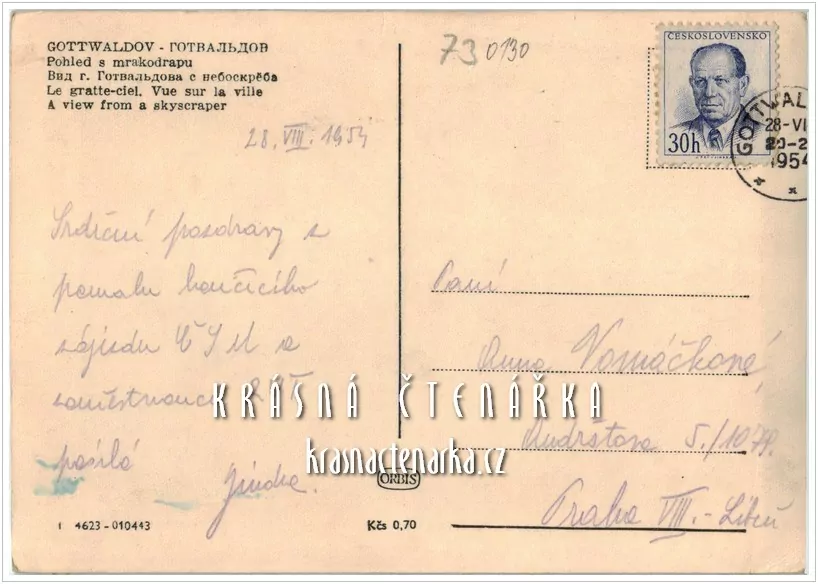 GOTTWALDOV - ГОТВАЛЬДОВ
Pohled s mrakodrapu
Вид г. Готвальдова с небоскрёба
Le gratte-ciel. Vue sur la ville
A view from a skyscraper
73 0130
ČESKOSLOVENSKO
30h
GOTTWAL
28-VI
1954
28. VIII. 1954
Srdečné pozdravy z
pomalu končícího
zájezdu ČSM a
zaměstnanců
posílá
Jindra.
Paní
Anna Vomáčková
5./1079.
Praha VIII. - Libeň
KRÁSNÁ ČTENÁŘKA
krasnactenarka.cz
ORBIS
1 4623-010443
Kčs 0,70